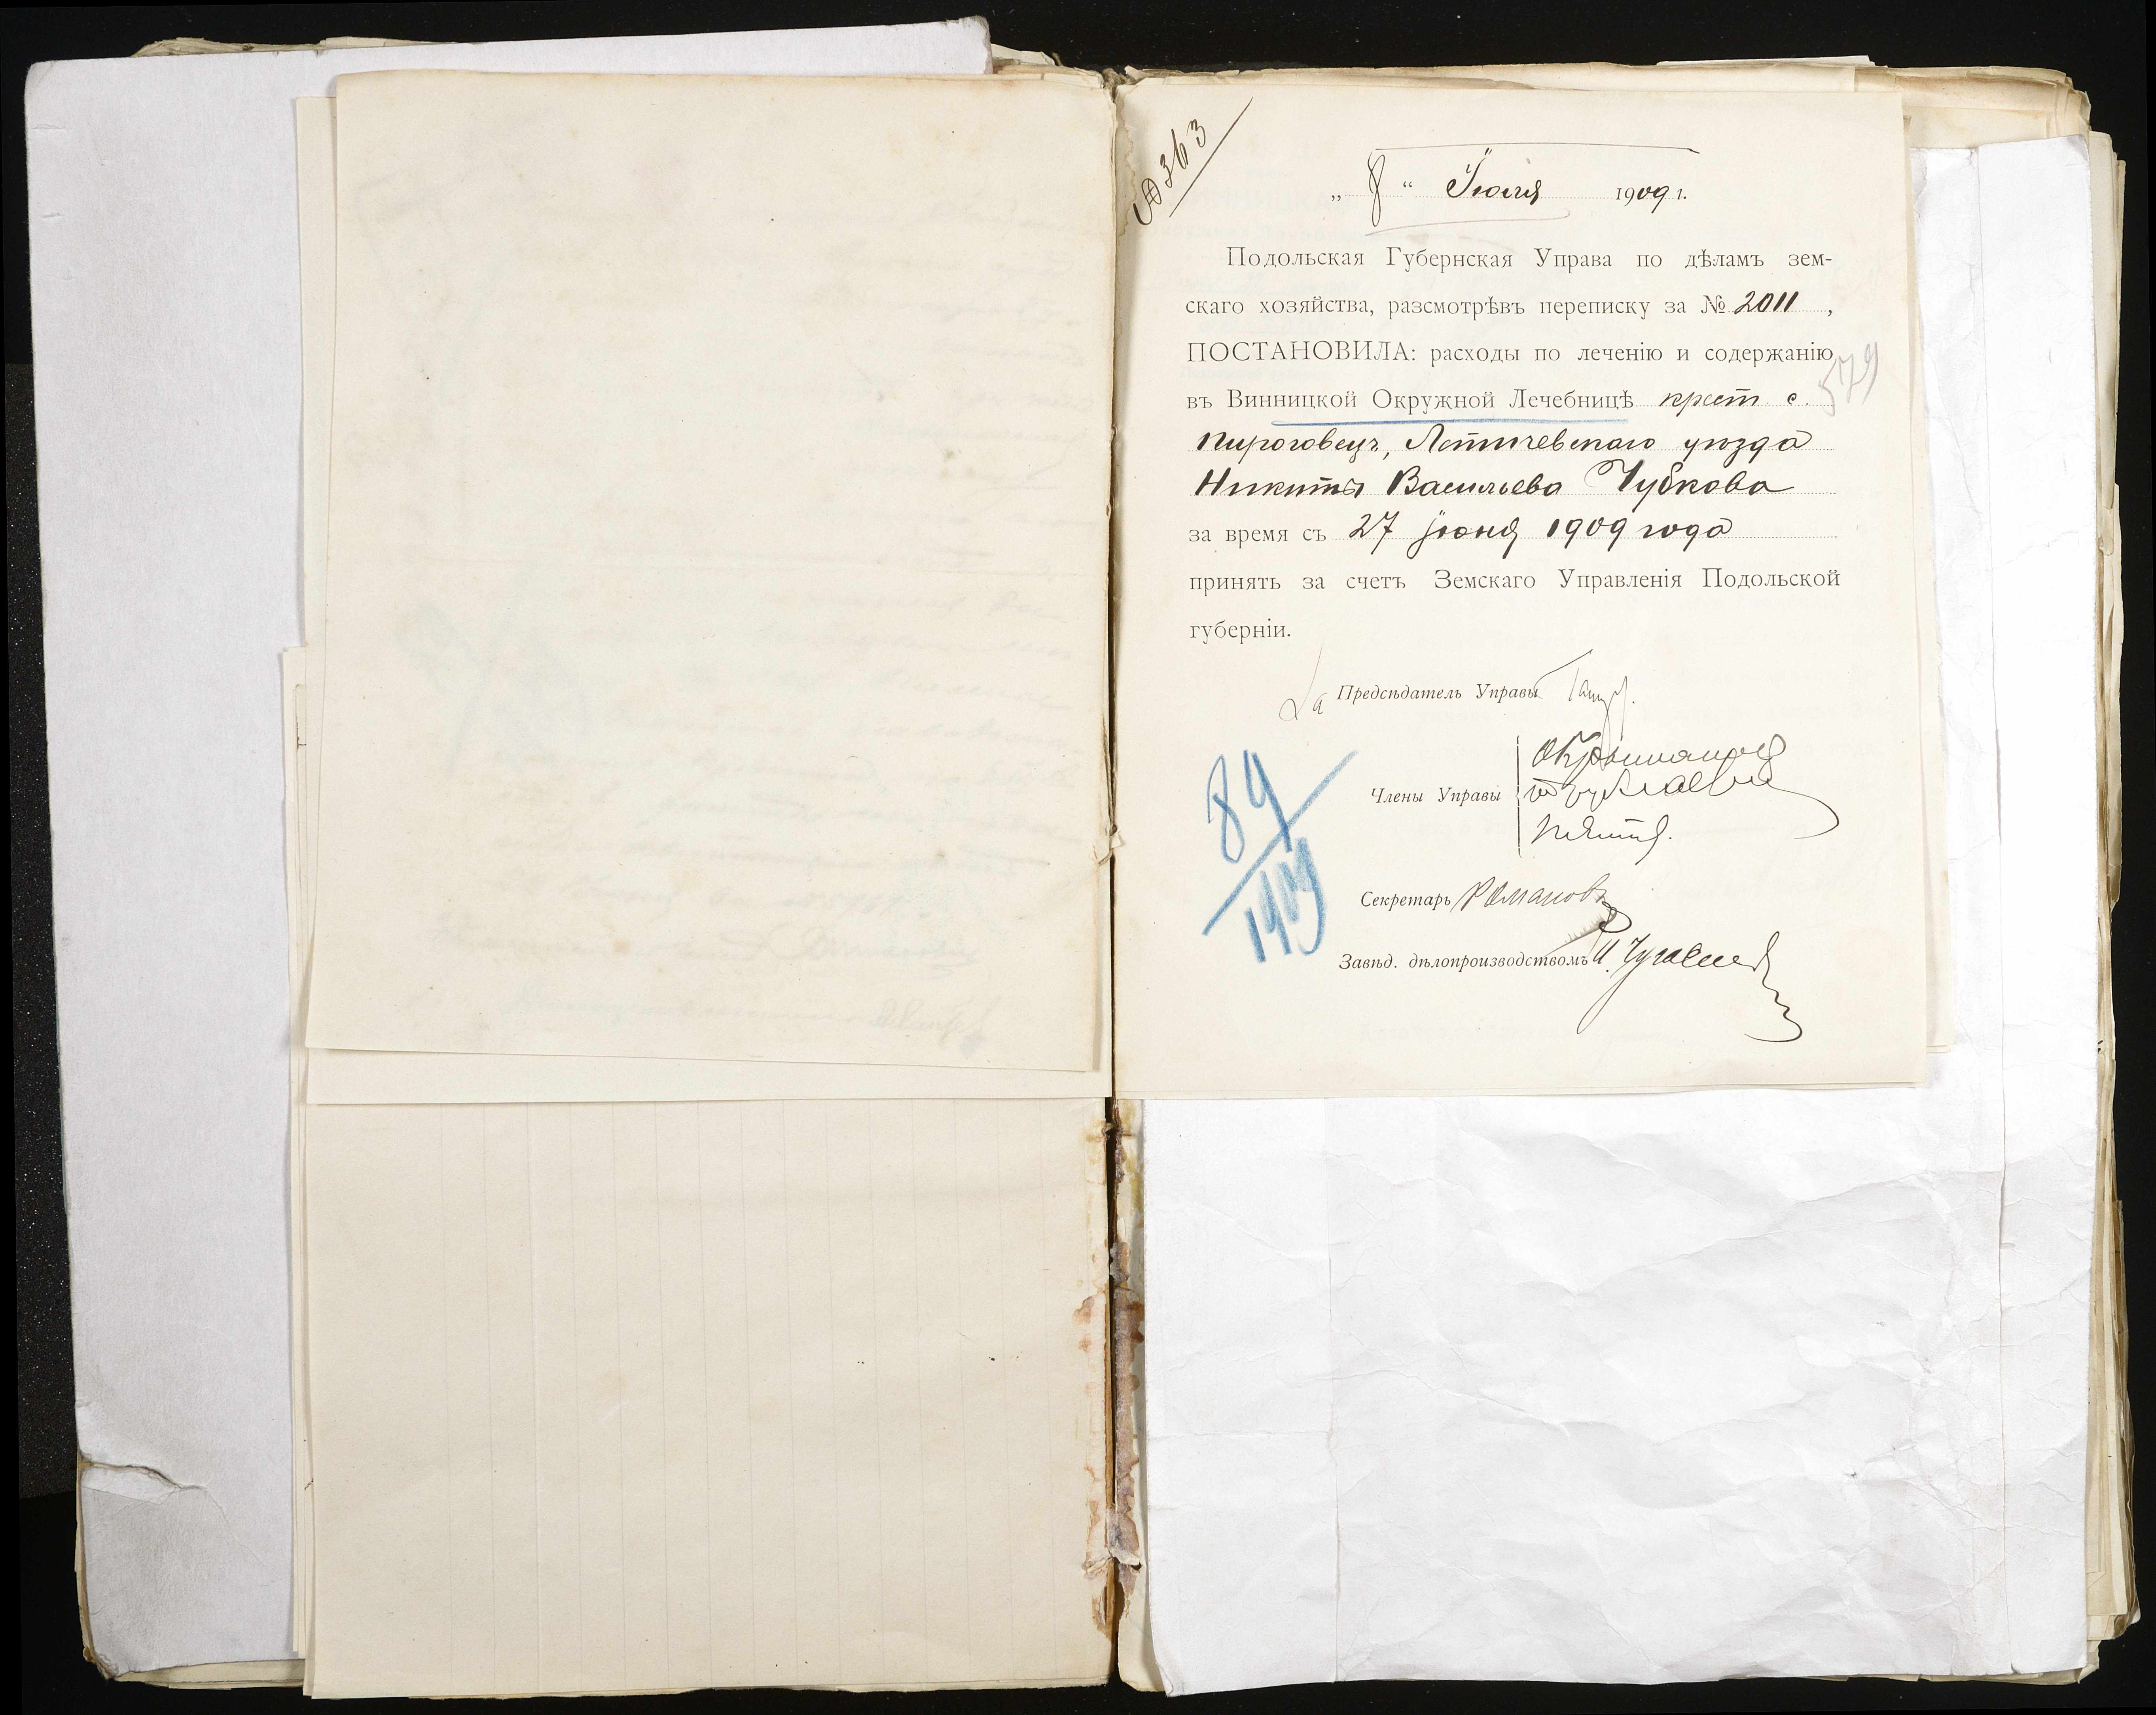 № 363
„ 8 “ Июля 1909 г.
Подольская Губернская Управа по дѣламъ зем-
скаго хозяйства, разсмотрѣвъ переписку за № 2011 ,
ПОСТАНОВИЛА: расходы по леченію и содержанію
579
въ Винницкой Окружной Лечебницѣ крест. с.
Пироговецъ, Летичевскаго уѣзда
Никиты Васильева Чубкова
за время съ 27 Іюня 1909 года
принять за счетъ Земскаго Управленія Подольской
губерніи.
За Предсѣдатель Управы
Члены Управы
Секретарь Романовъ
Завѣд. дѣлопроизводствомъ
89
1909